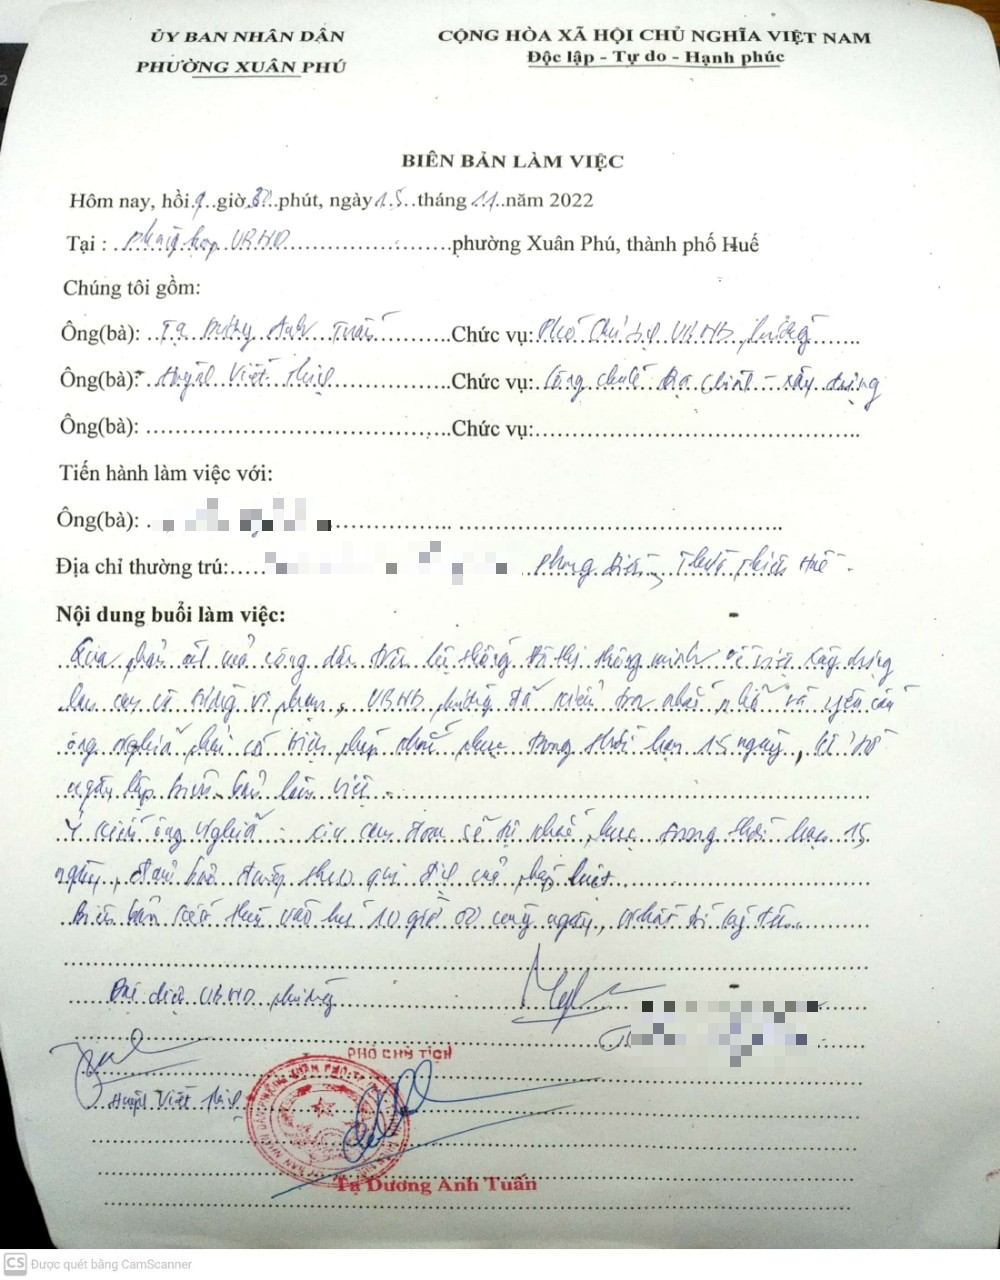 ỦY BAN NHÂN DÂN
PHƯỜNG XUÂN PHÚ
CỘNG HÒA XÃ HỘI CHỦ NGHĨA VIỆT NAM
Độc lập - Tự do - Hạnh phúc
BIÊN BẢN LÀM VIỆC
Hôm nay, hồi 9 giờ phút, ngày 15 tháng 11 năm 2022
Tại : Phòng họp UBND phường Xuân Phú, thành phố Huế
Chúng tôi gồm:
Ông(bà): Tạ Dương Anh Tuấn Chức vụ: Phó Chủ tịch UBND phường
Ông(bà): Huỳnh Việt Chức vụ: Công chức Địa chính - xây dựng
Ông(bà): Chức vụ:
Tiến hành làm việc với:
Ông(bà):
Địa chỉ thường trú: Phong Điền, Thừa Thiên Huế.
Nội dung buổi làm việc:
Qua phản ánh của công dân trên hệ thống đô thị thông minh về việc xây dựng
lan can có vi phạm, UBND phường đã kiểm tra nhắc nhở và yêu cầu
ông Nghĩa phải có biện pháp khắc phục trong thời hạn 15 ngày, kể từ
ngày lập biên bản làm việc.
Ý kiến ông Nghĩa: xin cam đoan sẽ tự khắc phục trong thời hạn 15
ngày, đảm bảo đường theo qui định của pháp luật.
Biên bản kết thúc vào lúc 10 giờ 00 cùng ngày, nhất trí ký tên.
Đại diện UBND phường
PHÓ CHỦ TỊCH
Huỳnh Việt
Tạ Dương Anh Tuấn
CS Được quét bằng CamScanner